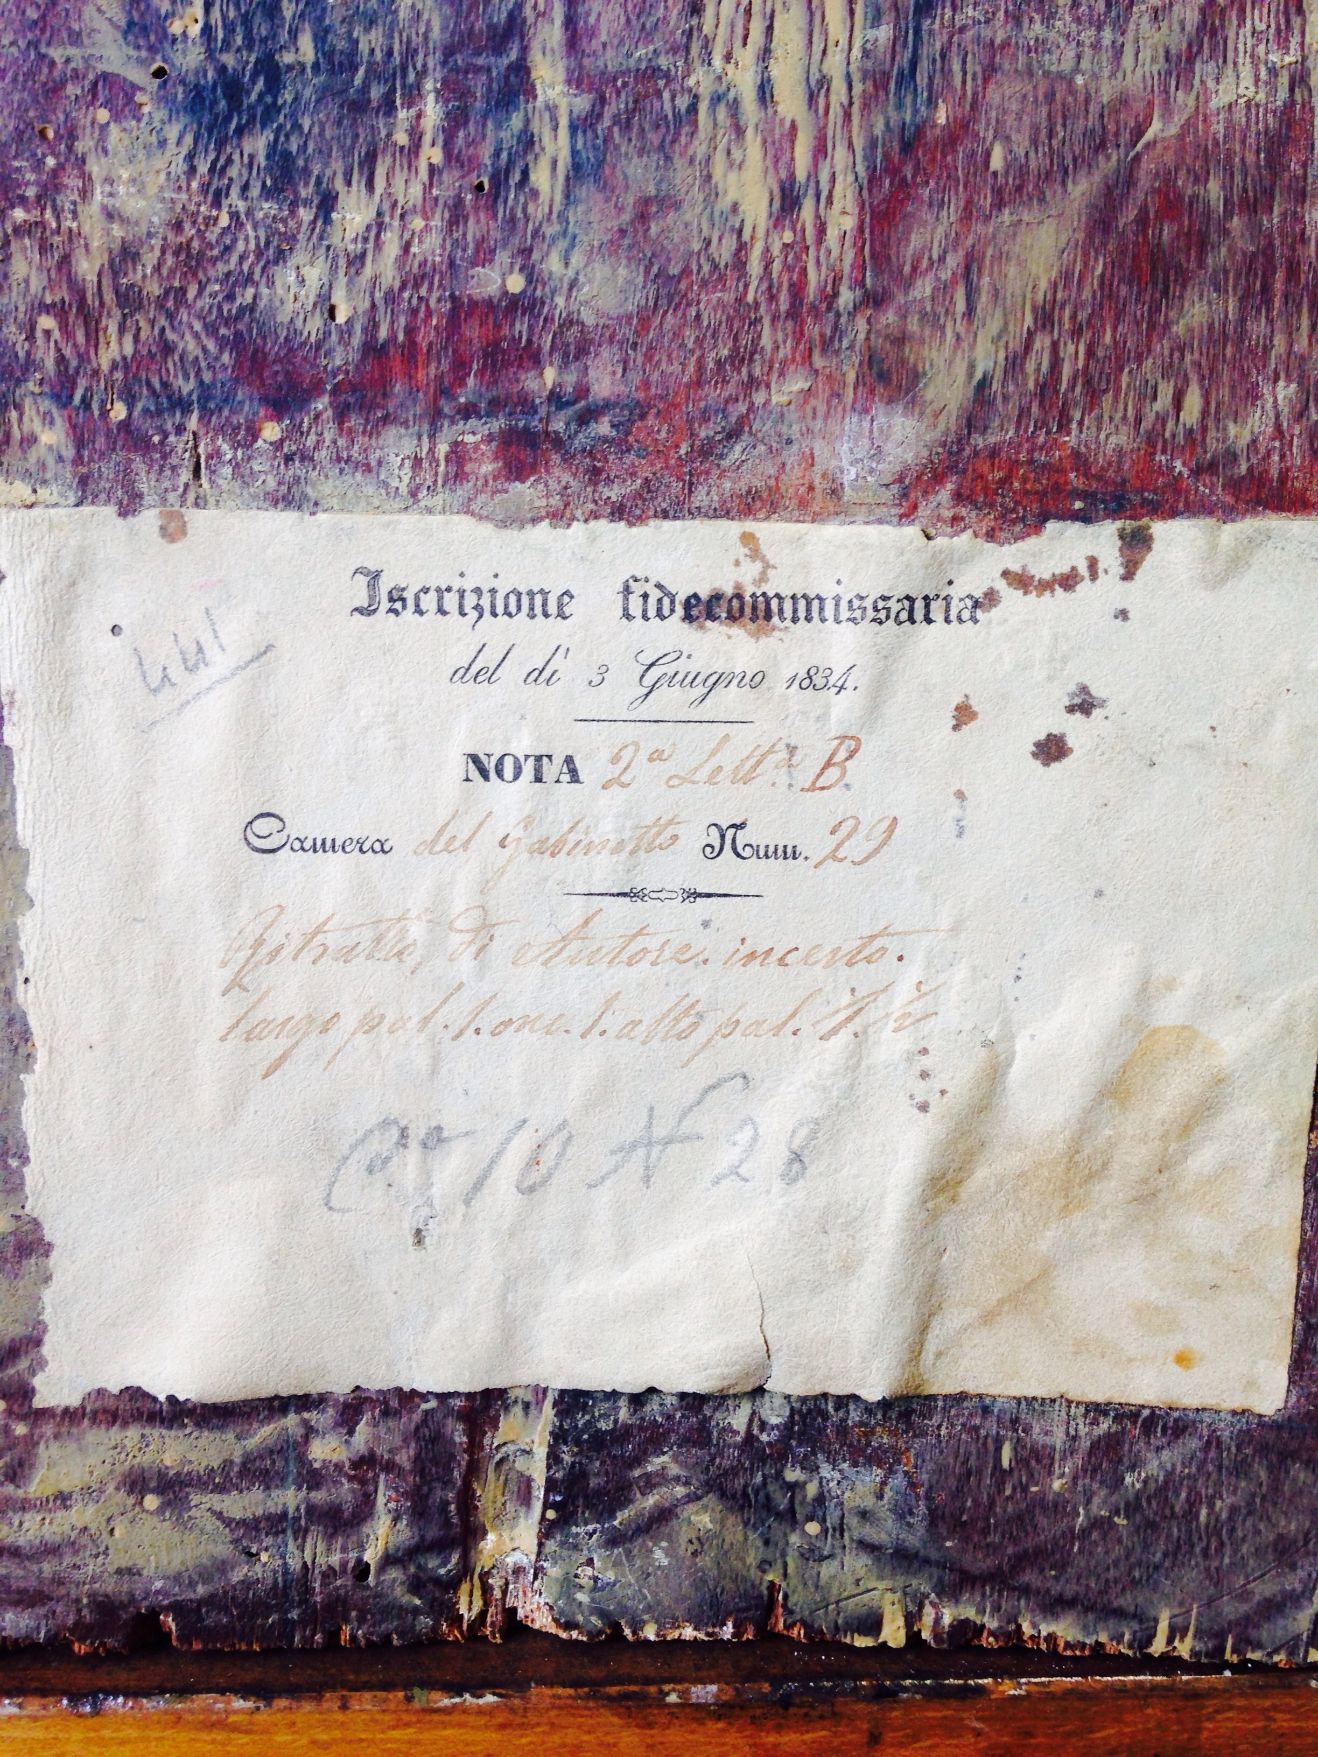 Iscrizione fidecommissaria
441
del dì 3 Giugno 1834.
NOTA 2a Lett.a B
Camera del Gabinetto Num. 29
Ritratto, di Autore incerto.
largo pal. 1. onc. 1. alto pal. 1. ½
10 N 28